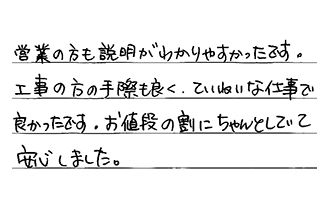 営業の方も説明がわかりやすかったです。
工事の方の手際も良く、ていねいな仕事で
良かったです。お値段の割にちゃんとしていて
安心しました。